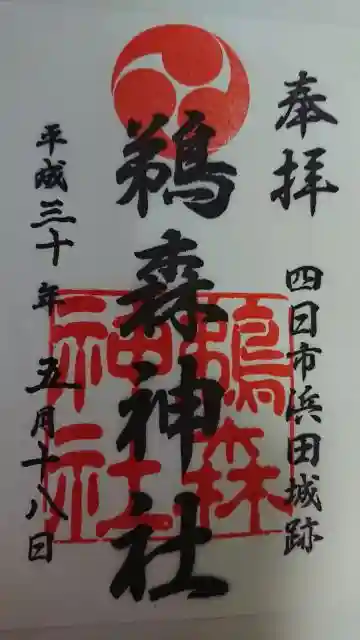 奉拝
四日市浜田城跡
鵜森神社
鵜森神社
平成三十年五月十八日